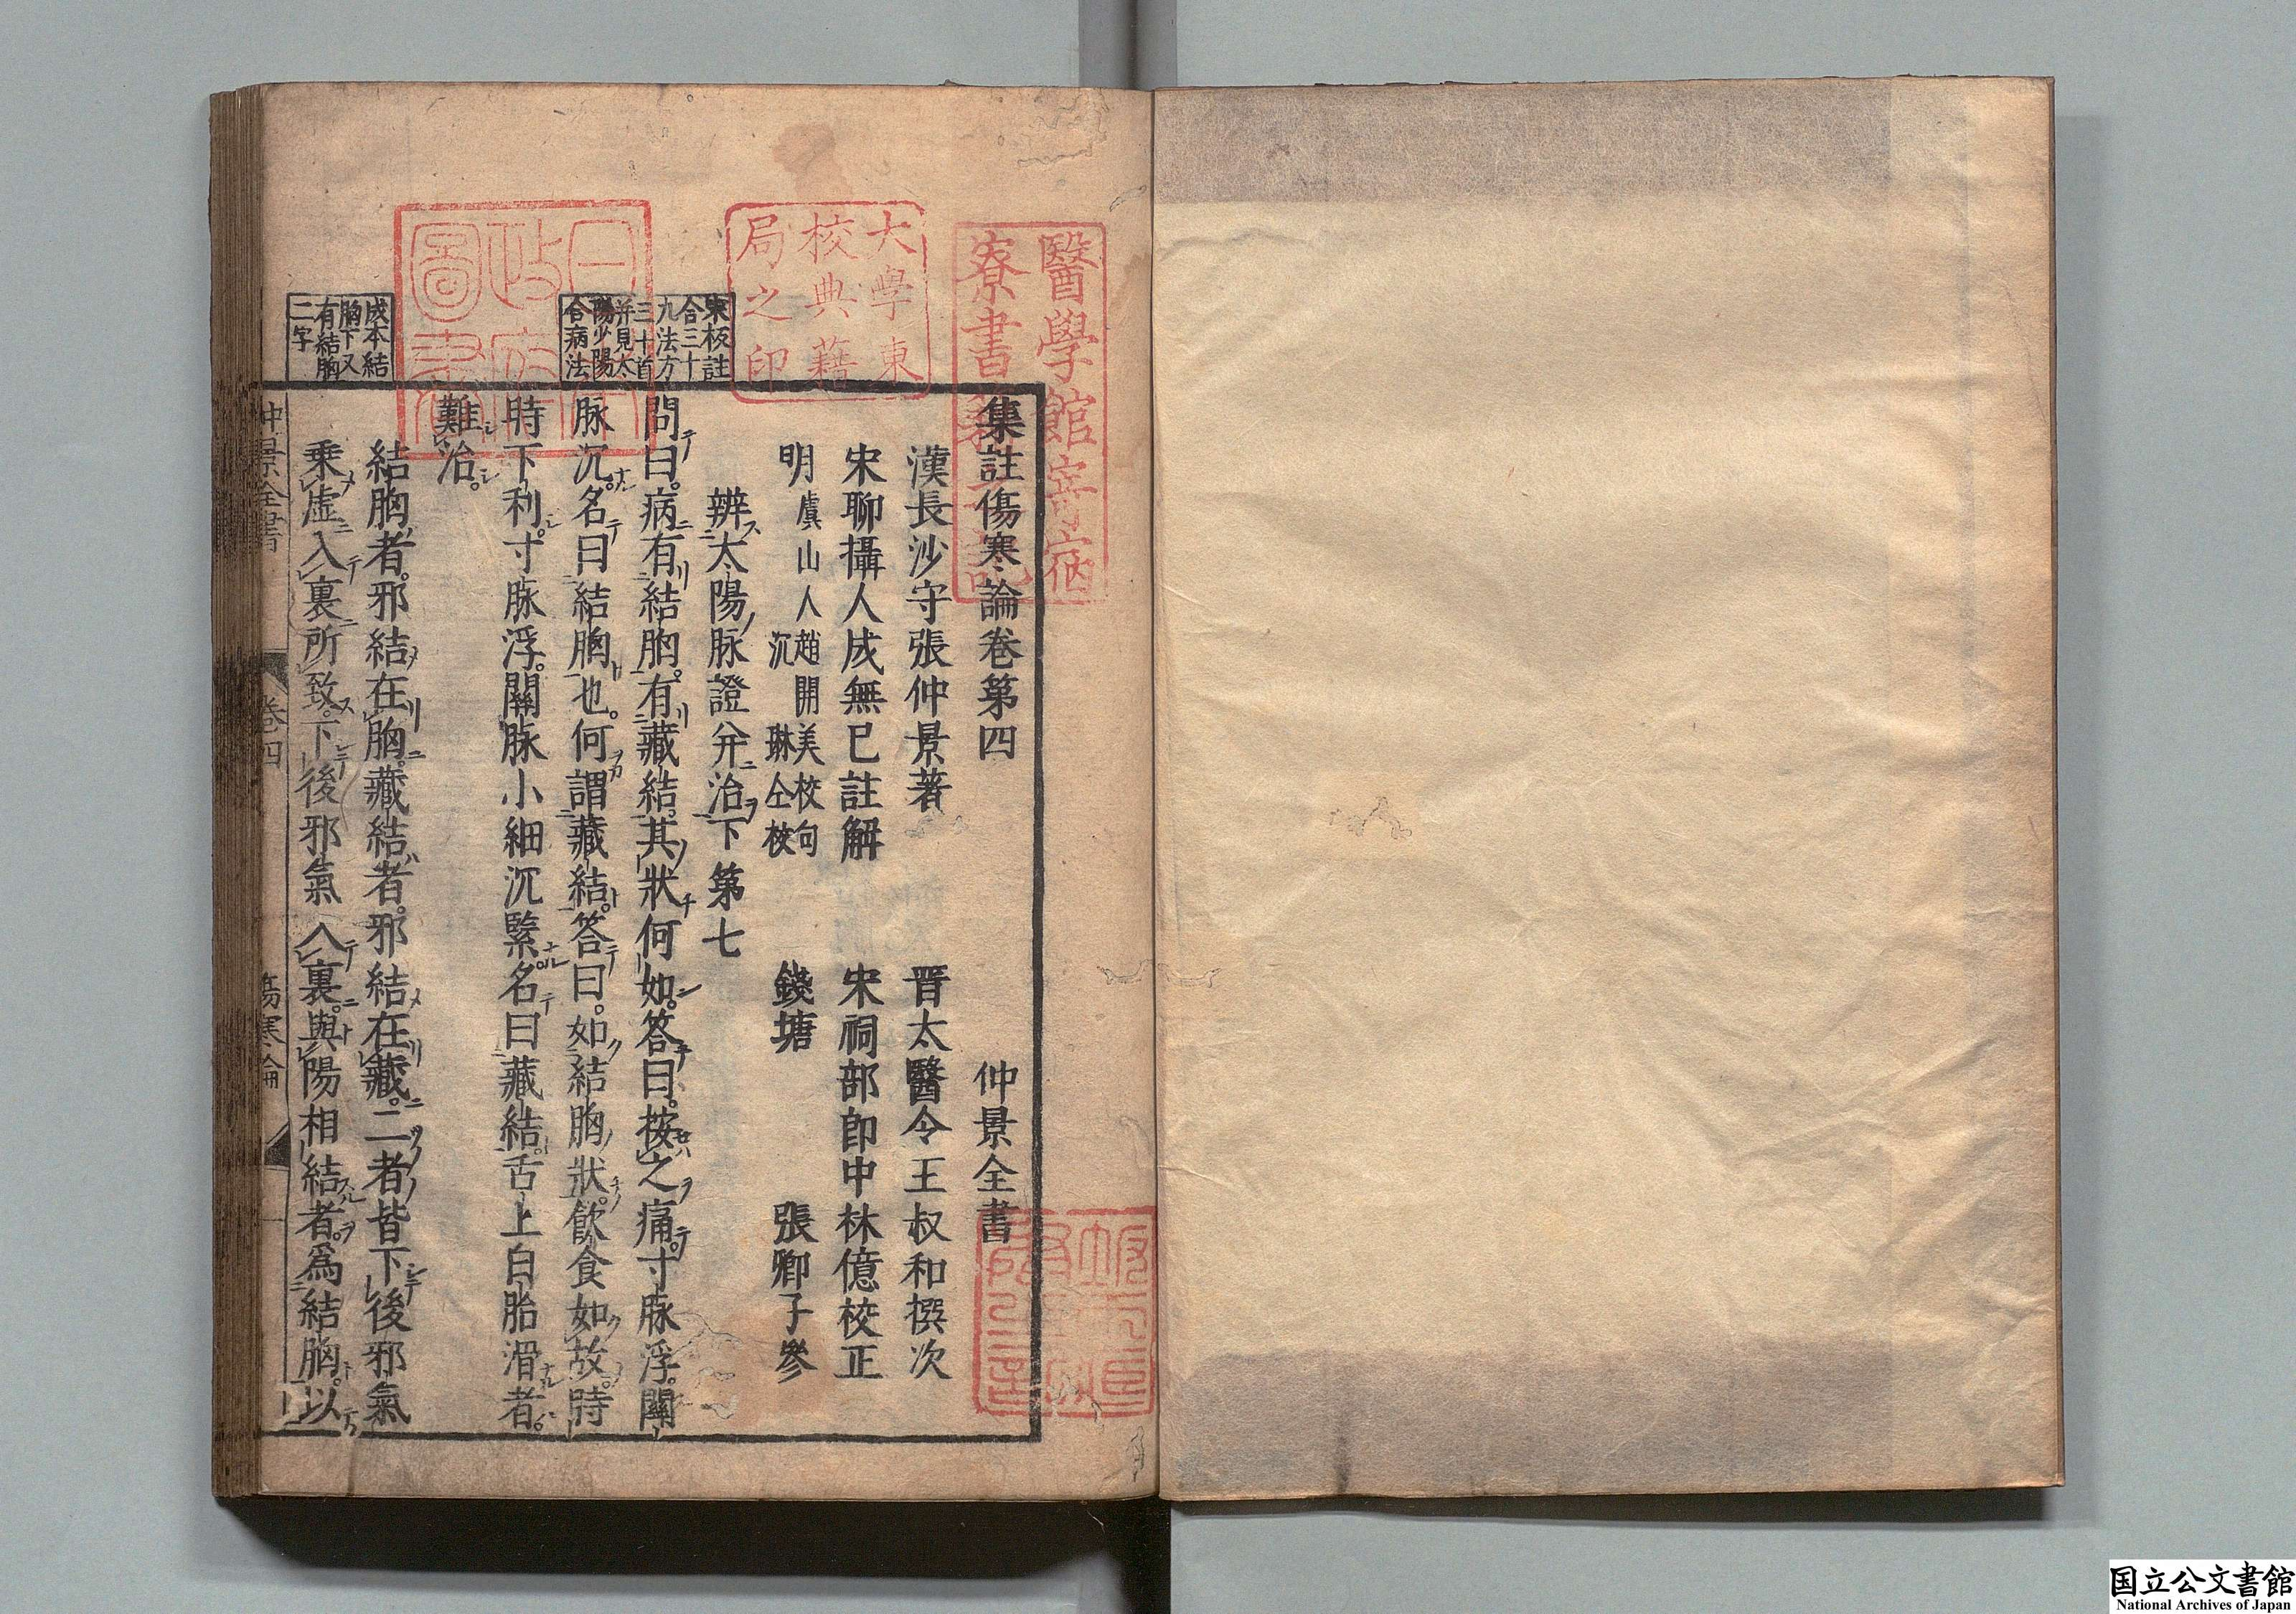 集註傷寒論卷第四 仲景全書
漢長沙守張仲景著 晋太醫令王叔和撰次
宋聊攝人成無已註解 宋祠部郎中林億校正
明虞山人趙開美校句
沉琳仝校
錢塘 張卿子參
辨太陽脉證并治下第七
問曰。病有結胸。有藏結。其狀何如。答曰。按之痛。寸脉浮。關
脉沉。名曰結胸也。何謂藏結。答曰。如結胸狀。飲食如故。時
時下利。寸脉浮。關脉小細沉緊。名曰藏結。舌上白胎滑者。
難治。
結胸者。邪結在胸。藏結者。邪結在藏。二者皆下後邪氣
乗虛入裏所致。下後邪氣入裏。與陽相結者。爲結胸。以
宋板註
合三十
九法方
三十首
并見太
陽少陽
合病法
成本結
胸下又
有結胸
二字
仲景全書 卷四 傷寒論 一
醫學館寄宿
寮書籍記
大學東
校典籍
局之印
日本
政府
圖書
国立公文書館
National Archives of Japan